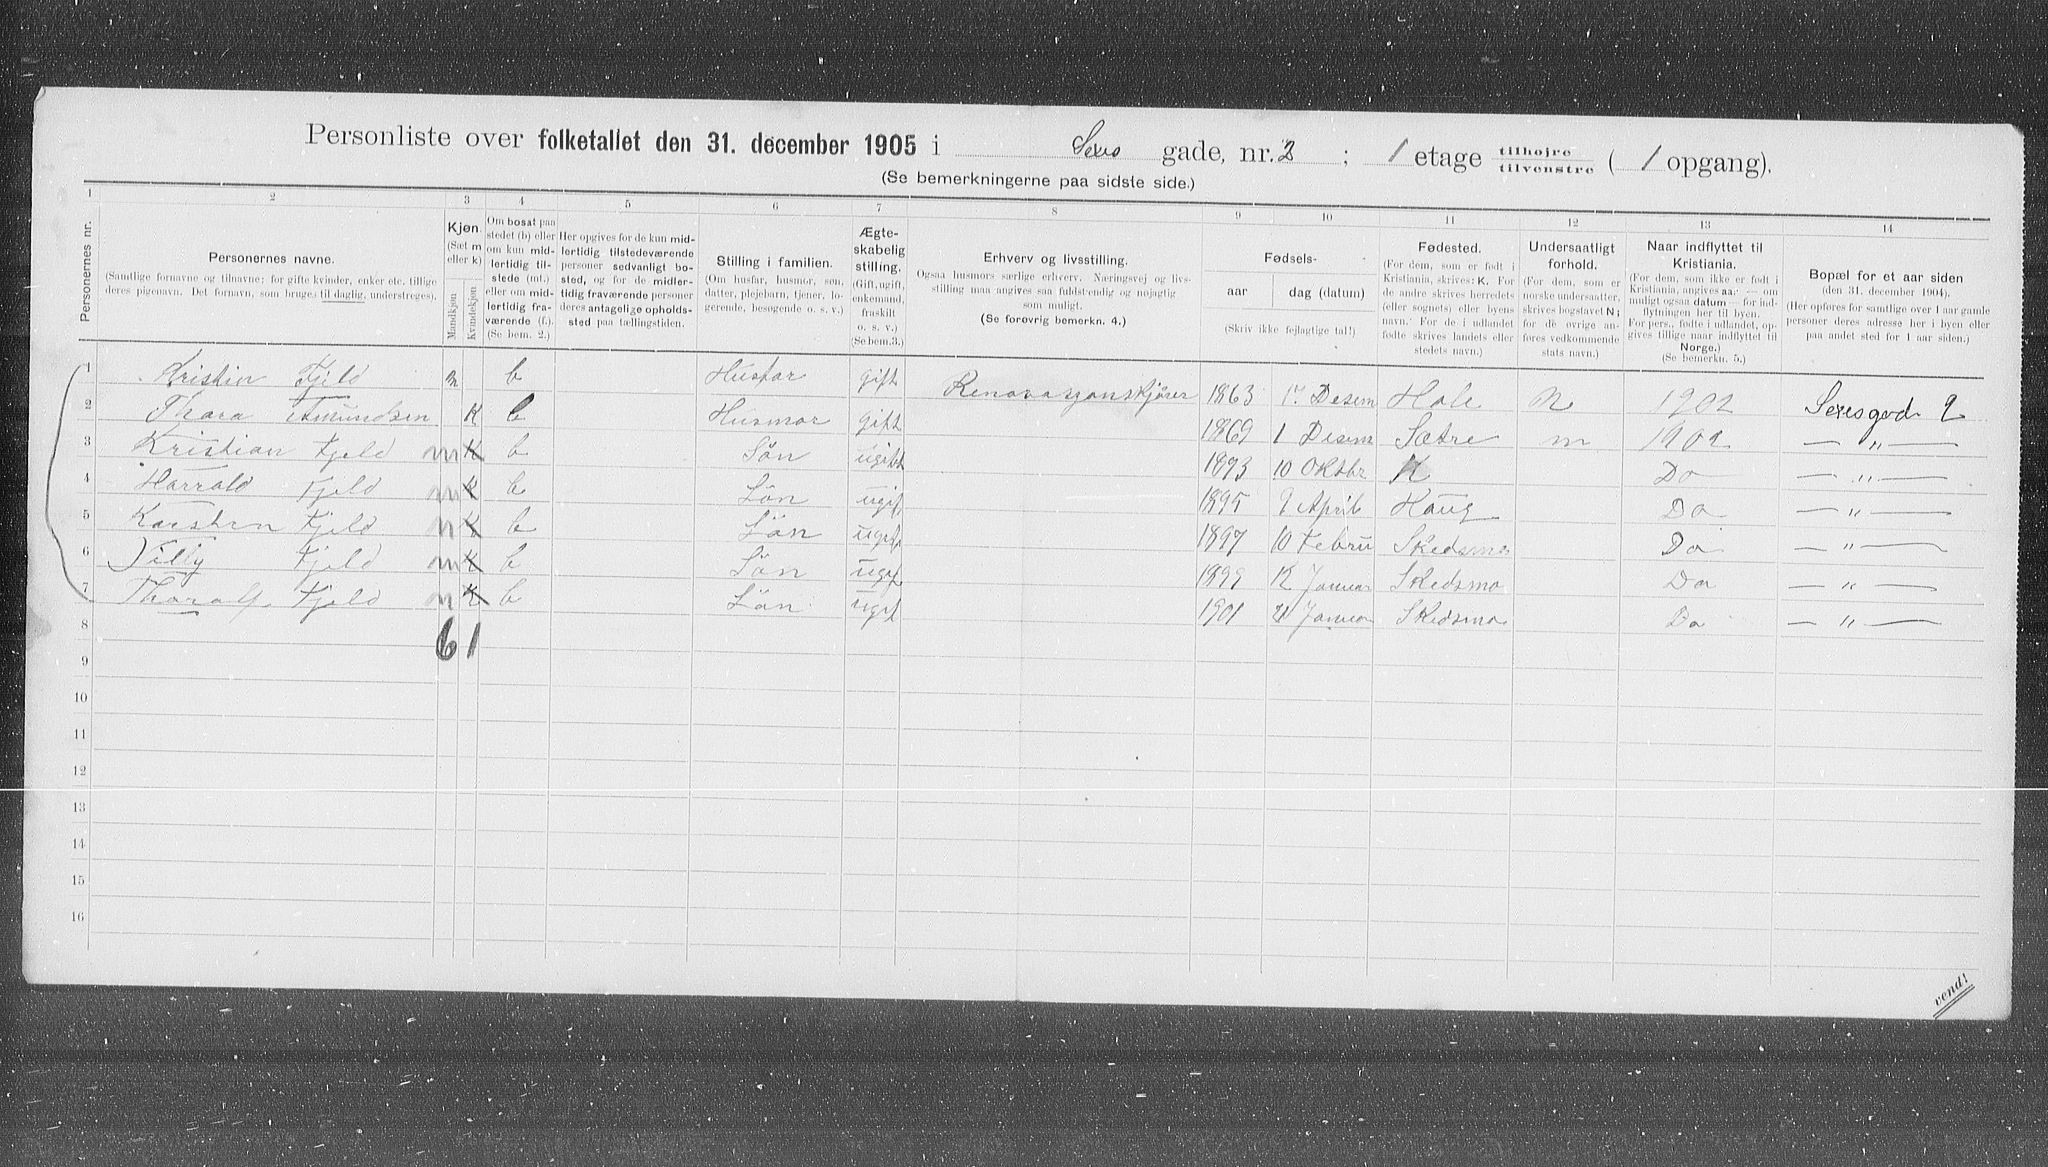 Personliste over folketallet den 31. december 1905 i Sexes gade, nr. 2 ; 1 etage tilhøjre tilvenstre ( 1 opgang).
(Se bemerkningerne paa sidste side.)
1 2 3 4 5 6 7 8 9 10 11 12 13 14
Personernes nr.
Personernes navne.
(Samtlige fornavne og tilnavne; for gifte kvinder, enker etc. tillige deres pigenavn. Det fornavn, som bruges til daglig, understreges).
Kjøn.
(Sæt m eller k)
Mandkjøn
Kvindekjøn
Om bosat paa stedet (b) eller om kun midlertidig tilstede (mt.) eller om midlertidig fraværende (f.) (Se bem. 2.)
Her opgives for de kun midlertidig tilstedeværende personer sedvanligt bosted, og for de midlertidig fraværende personer deres antagelige opholdssted paa tællingstiden.
Stilling i familien.
(Om husfar, husmor, søn, datter, plejebarn, tjener, logerende, besøgende o. s. v.)
Ægteskabelig stilling.
(Gift, ugift, enkemand, fraskilt o. s. v.) (Se bem. 3.)
Erhverv og livsstilling.
Ogsaa husmors særlige erhverv. Næringsvej og livsstilling maa angives saa fuldstændig og nøjagtig som muligt.
(Se forøvrig bemerkn. 4.)
Fødsels-
aar
dag (datum)
(Skriv ikke fejlagtige tal!)
Fødested.
(For dem, som er født i Kristiania, skrives: K. For de andre skrives herredets (eller sognets) eller byens navn. For de i udlandet fødte skrives landets eller stedets navn.)
Undersaatligt forhold.
(For dem, som er norske undersaatter, skrives bogstavet N; for de øvrige anføres vedkommende stats navn.)
Naar indflyttet til Kristiania.
(For dem, som ikke er født i Kristiania, angives aar — om muligt ogsaa datum — for indflytningen her til byen. For pers., fødte i udlandet, opgives tillige naar indflyttet til Norge.)
(Se bemerkn. 5.)
Bopæl for et aar siden
(den 31. december 1904).
(Her opføres for samtlige over 1 aar gamle personer deres adresse her i byen eller paa andet sted for 1 aar siden.)
1 Kristian Fjeld m b Husfar gift Renovasjonskjører 1863 17 Desem Hole N 1902 Sexesgad 2
2 Thora Amundsen K b Husmor gift 1869 1 Desem Sætre m 1902 — „ —
3 Kristian Fjeld m K b Sön ugift 1893 10 Oktbr K Do — „ —
4 Harrald Fjeld m K b Sön ugif 1895 9 April Haug Do — „ —
5 Karsten Fjeld m K b Sön ugif 1897 10 Febru Skedsmo Do — „ —
6 Villy Fjeld m K b Sön ugif 1899 12 Januar Skedsmo Do — „ —
7 Tharalf Fjeld m K b Sön ugif 1901 21 Januar Skedsmo Do — „ —
8 6 1
9
10
11
12
13
14
15
16
vend!